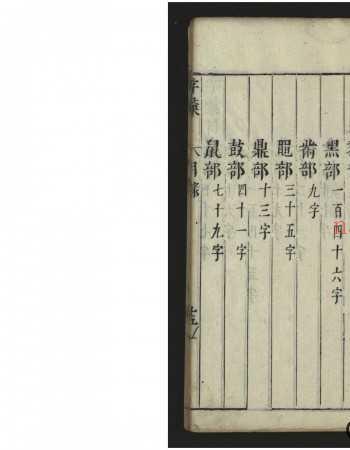 黑部一百四十六字
黹部九字
黽部三十五字
鼎部十三字
鼓部四十一字
鼠部七十九字